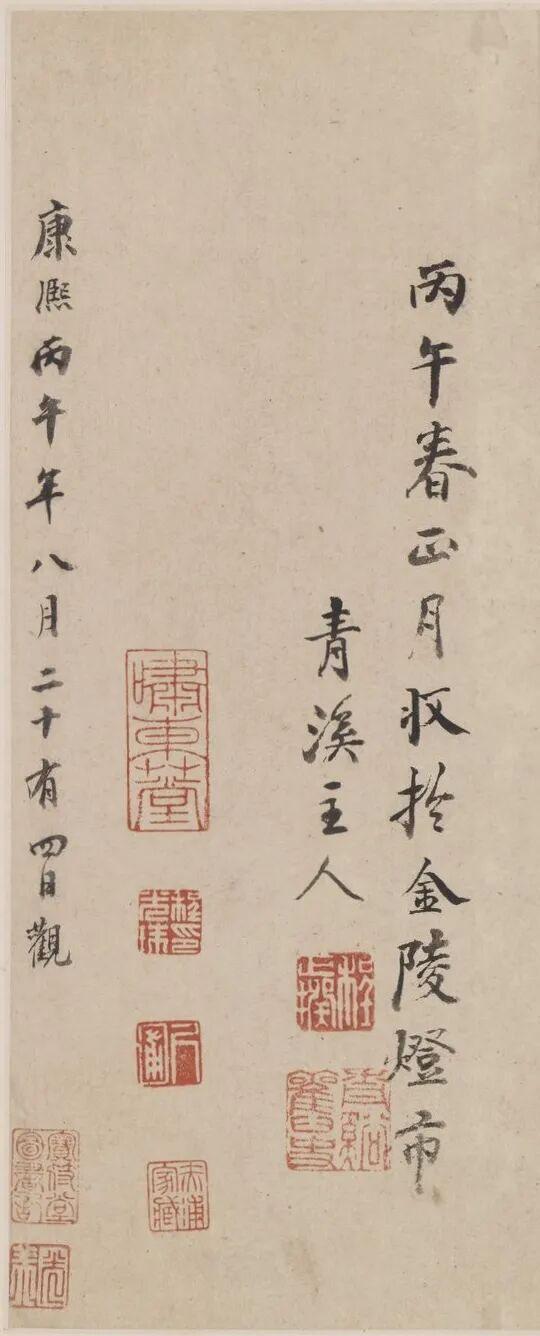 丙午春正月收於金陵燈市
青溪主人
嘯東堂
康熙丙午年八月二十有四日觀